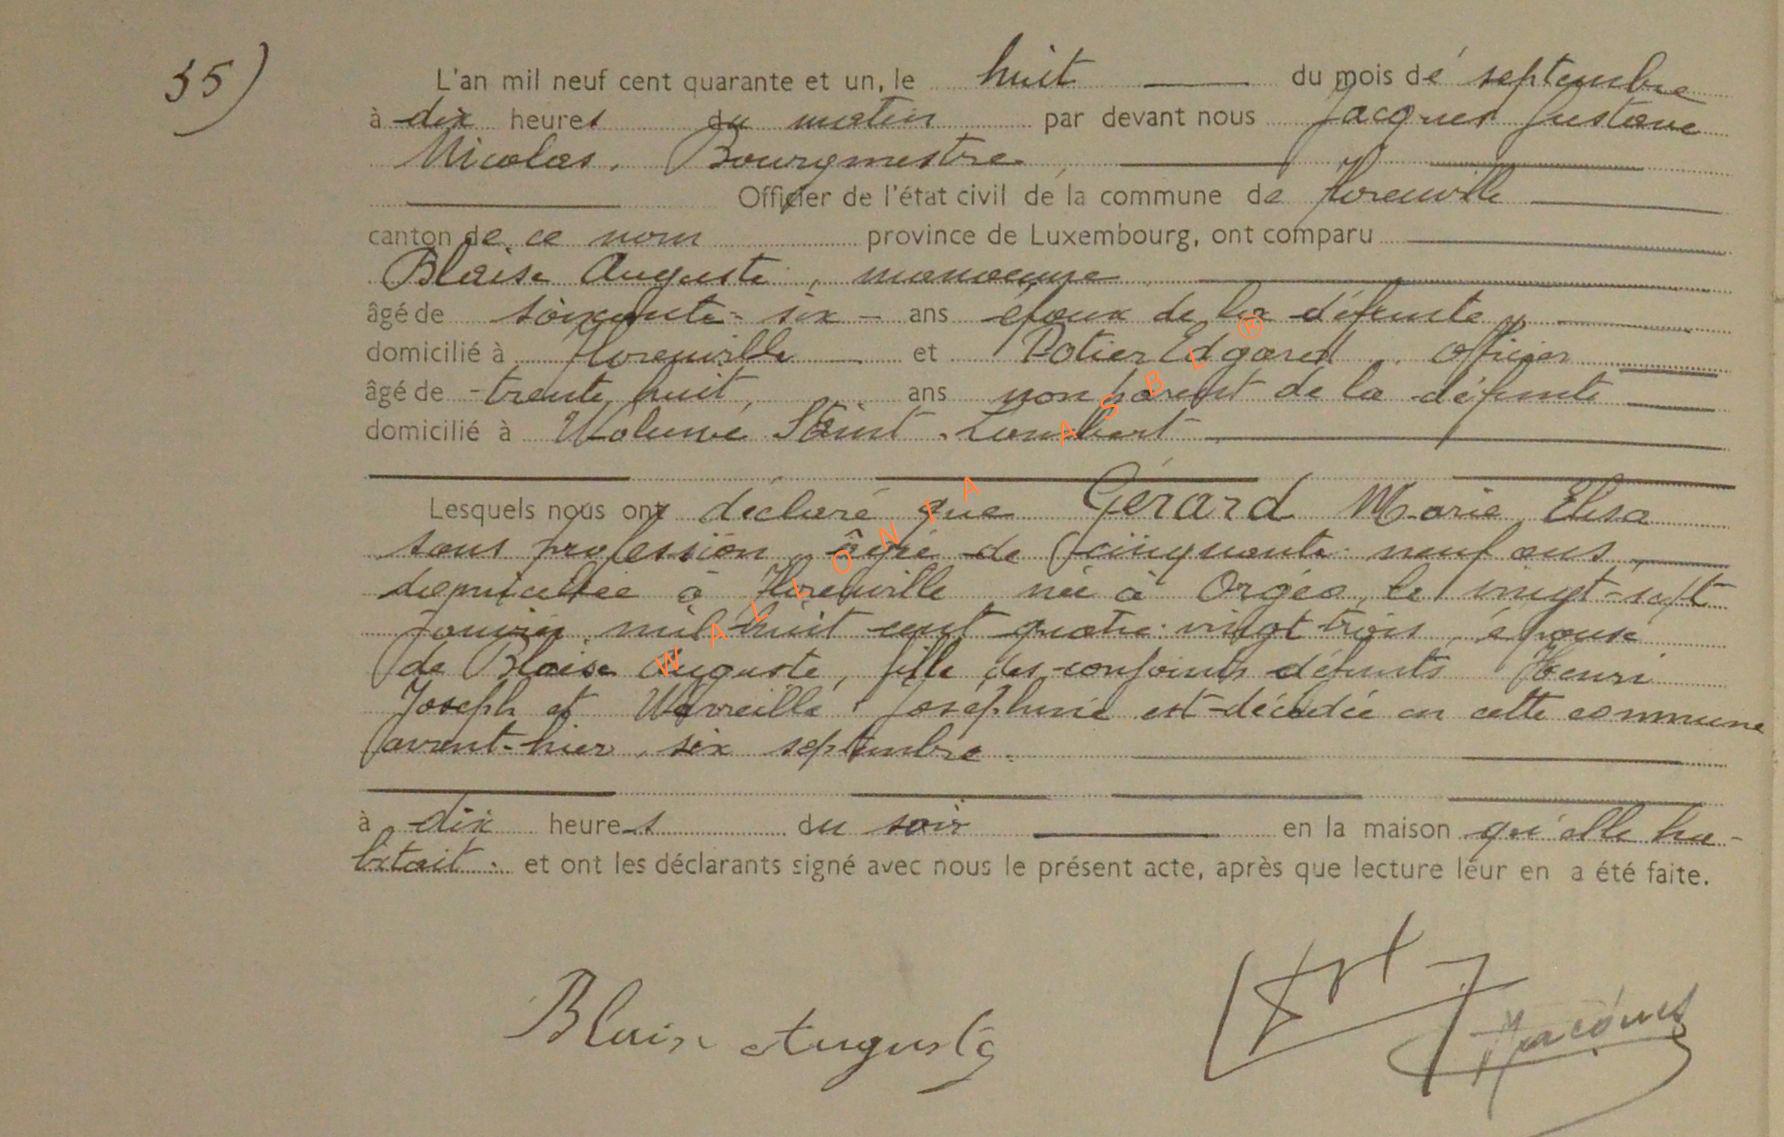 35)
L'an mil neuf cent quarante et un, le huit du mois de septembre
à dix heures du matin par devant nous Jacques Gustave
Nicolas, Bourgmestre
Officier de l'état civil de la commune de Florenville
canton de ce nom province de Luxembourg, ont comparu
Blaise Auguste, manoeuvre
âgé de soixante-six ans époux de la défunte
domicilié à Florenville et Potier Edgard, officier
âgé de trente huit, ans non parent de la défunte
domicilié à Woluwé Saint-Lambert
Lesquels nous ont déclaré que Gérard Marie Elisa
sans profession, âgée de cinquante-neuf ans
domiciliée à Florenville née à Orgéo, le vingt-sept
janvier mil huit cent quatre-vingt trois, épouse
de Blaise Auguste, fille des conjoints défunts Henri
Joseph et Joséphine est décédée en cette commune
avant-hier, six septembre.
à dix heures du soir en la maison qu'elle ha-
bitait. et ont les déclarants signé avec nous le présent acte, après que lecture leur en a été faite.
Blaise Auguste
GJacques
WALLONIA ASBL ®